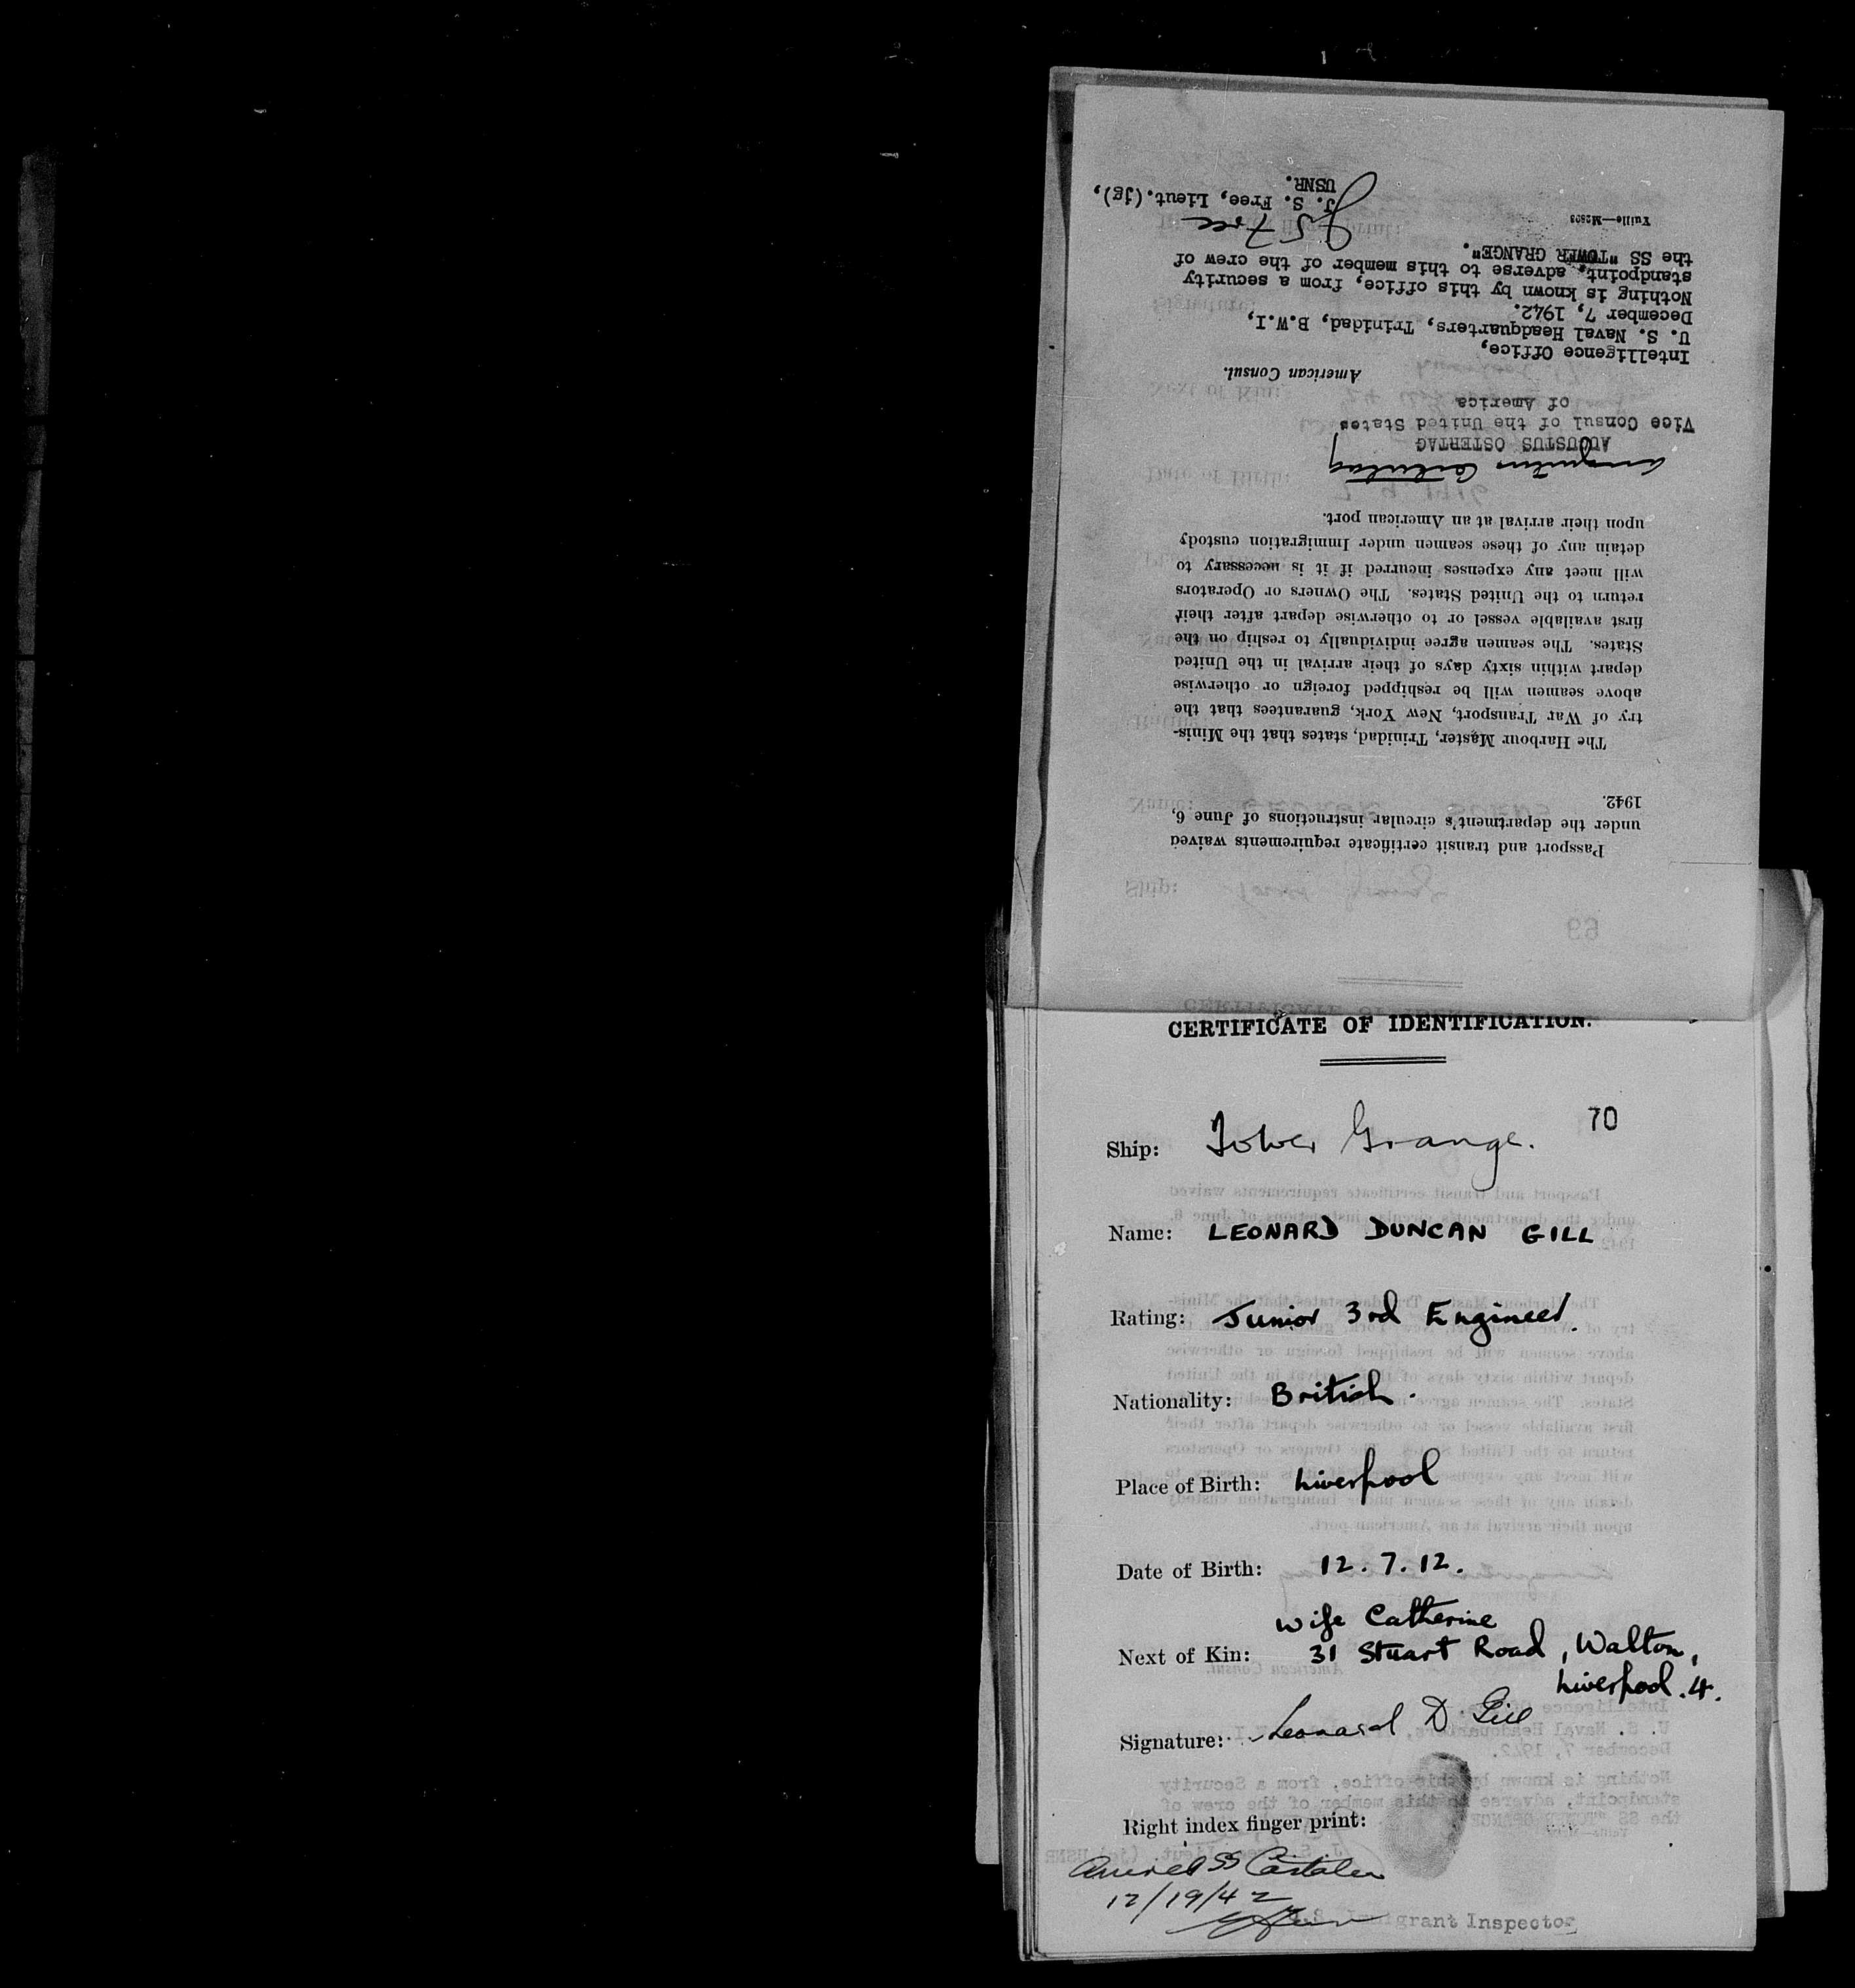 Passport and transit certificate requirements waived
under the department's circular instructions of June 6,
1942.
The Harbour Master, Trinidad, states that the Minis-
try of War Transport, New York, guarantees that the
above seamen will be reshipped foreign or otherwise
depart within sixty days of their arrival in the United
States. The seamen agree individually to reship on the
first available vessel or to otherwise depart after their
return to the United States. The Owners or Operators
will meet any expenses incurred if it is necessary to
detain any of these seamen under Immigration custody
upon their arrival at an American port.
AUGUSTUS OSTERTAG
Vice Consul of the United States
of America
American Consul.
Intelligence Office,
U. S. Naval Headquarters, Trinidad, B.W.I,
December 7, 1942.
Nothing is known by this office, from a security
standpoint, adverse to this member of the crew of
the SS "TOWER GRANGE".
J S Free
J. S. Free, Lieut.(jg),
USNR.
Yuille—M2803
Ship:
69
CERTIFICATE OF IDENTIFICATION.
70
Ship: Tower Grange.
Name: LEONARD DUNCAN GILL
Rating: Junior 3rd Engineer.
Nationality: British.
Place of Birth: Liverpool
Date of Birth: 12.7.12.
Wife Catherine
Next of Kin: 31 Stuart Road, Walton,
Liverpool.4.
Signature: Leonard D. Gill
Right index finger print:
Arrived SS
12/19/42
Immigrant Inspector